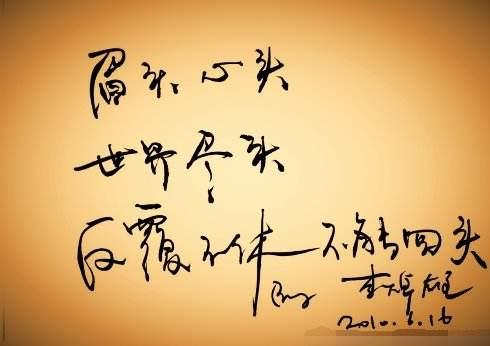 眉头心头
世界尽头
反覆不休 不肯回头
By 李焯雄
2010.6.16